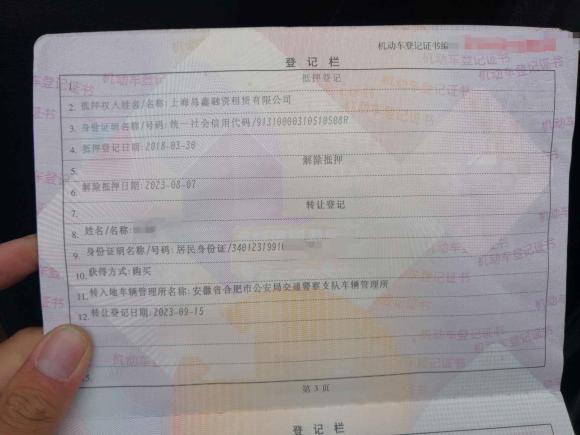 机动车登记证书编
登记栏
1. 抵押登记
2. 抵押权人姓名/名称:上海易鑫融资租赁有限公司
3. 身份证明名称/号码:统一社会信用代码/91310000310510508R
4. 抵押登记日期:2018-03-30
5. 解除抵押
6. 解除抵押日期:2023-08-07
7. 转让登记
8. 姓名/名称:
9. 身份证明名称/号码:居民身份证/3401231991
10. 获得方式:购买
11. 转入地车辆管理所名称:安徽省合肥市公安局交通警察支队车辆管理所
12. 转让登记日期:2023-09-15
第3页
登记栏